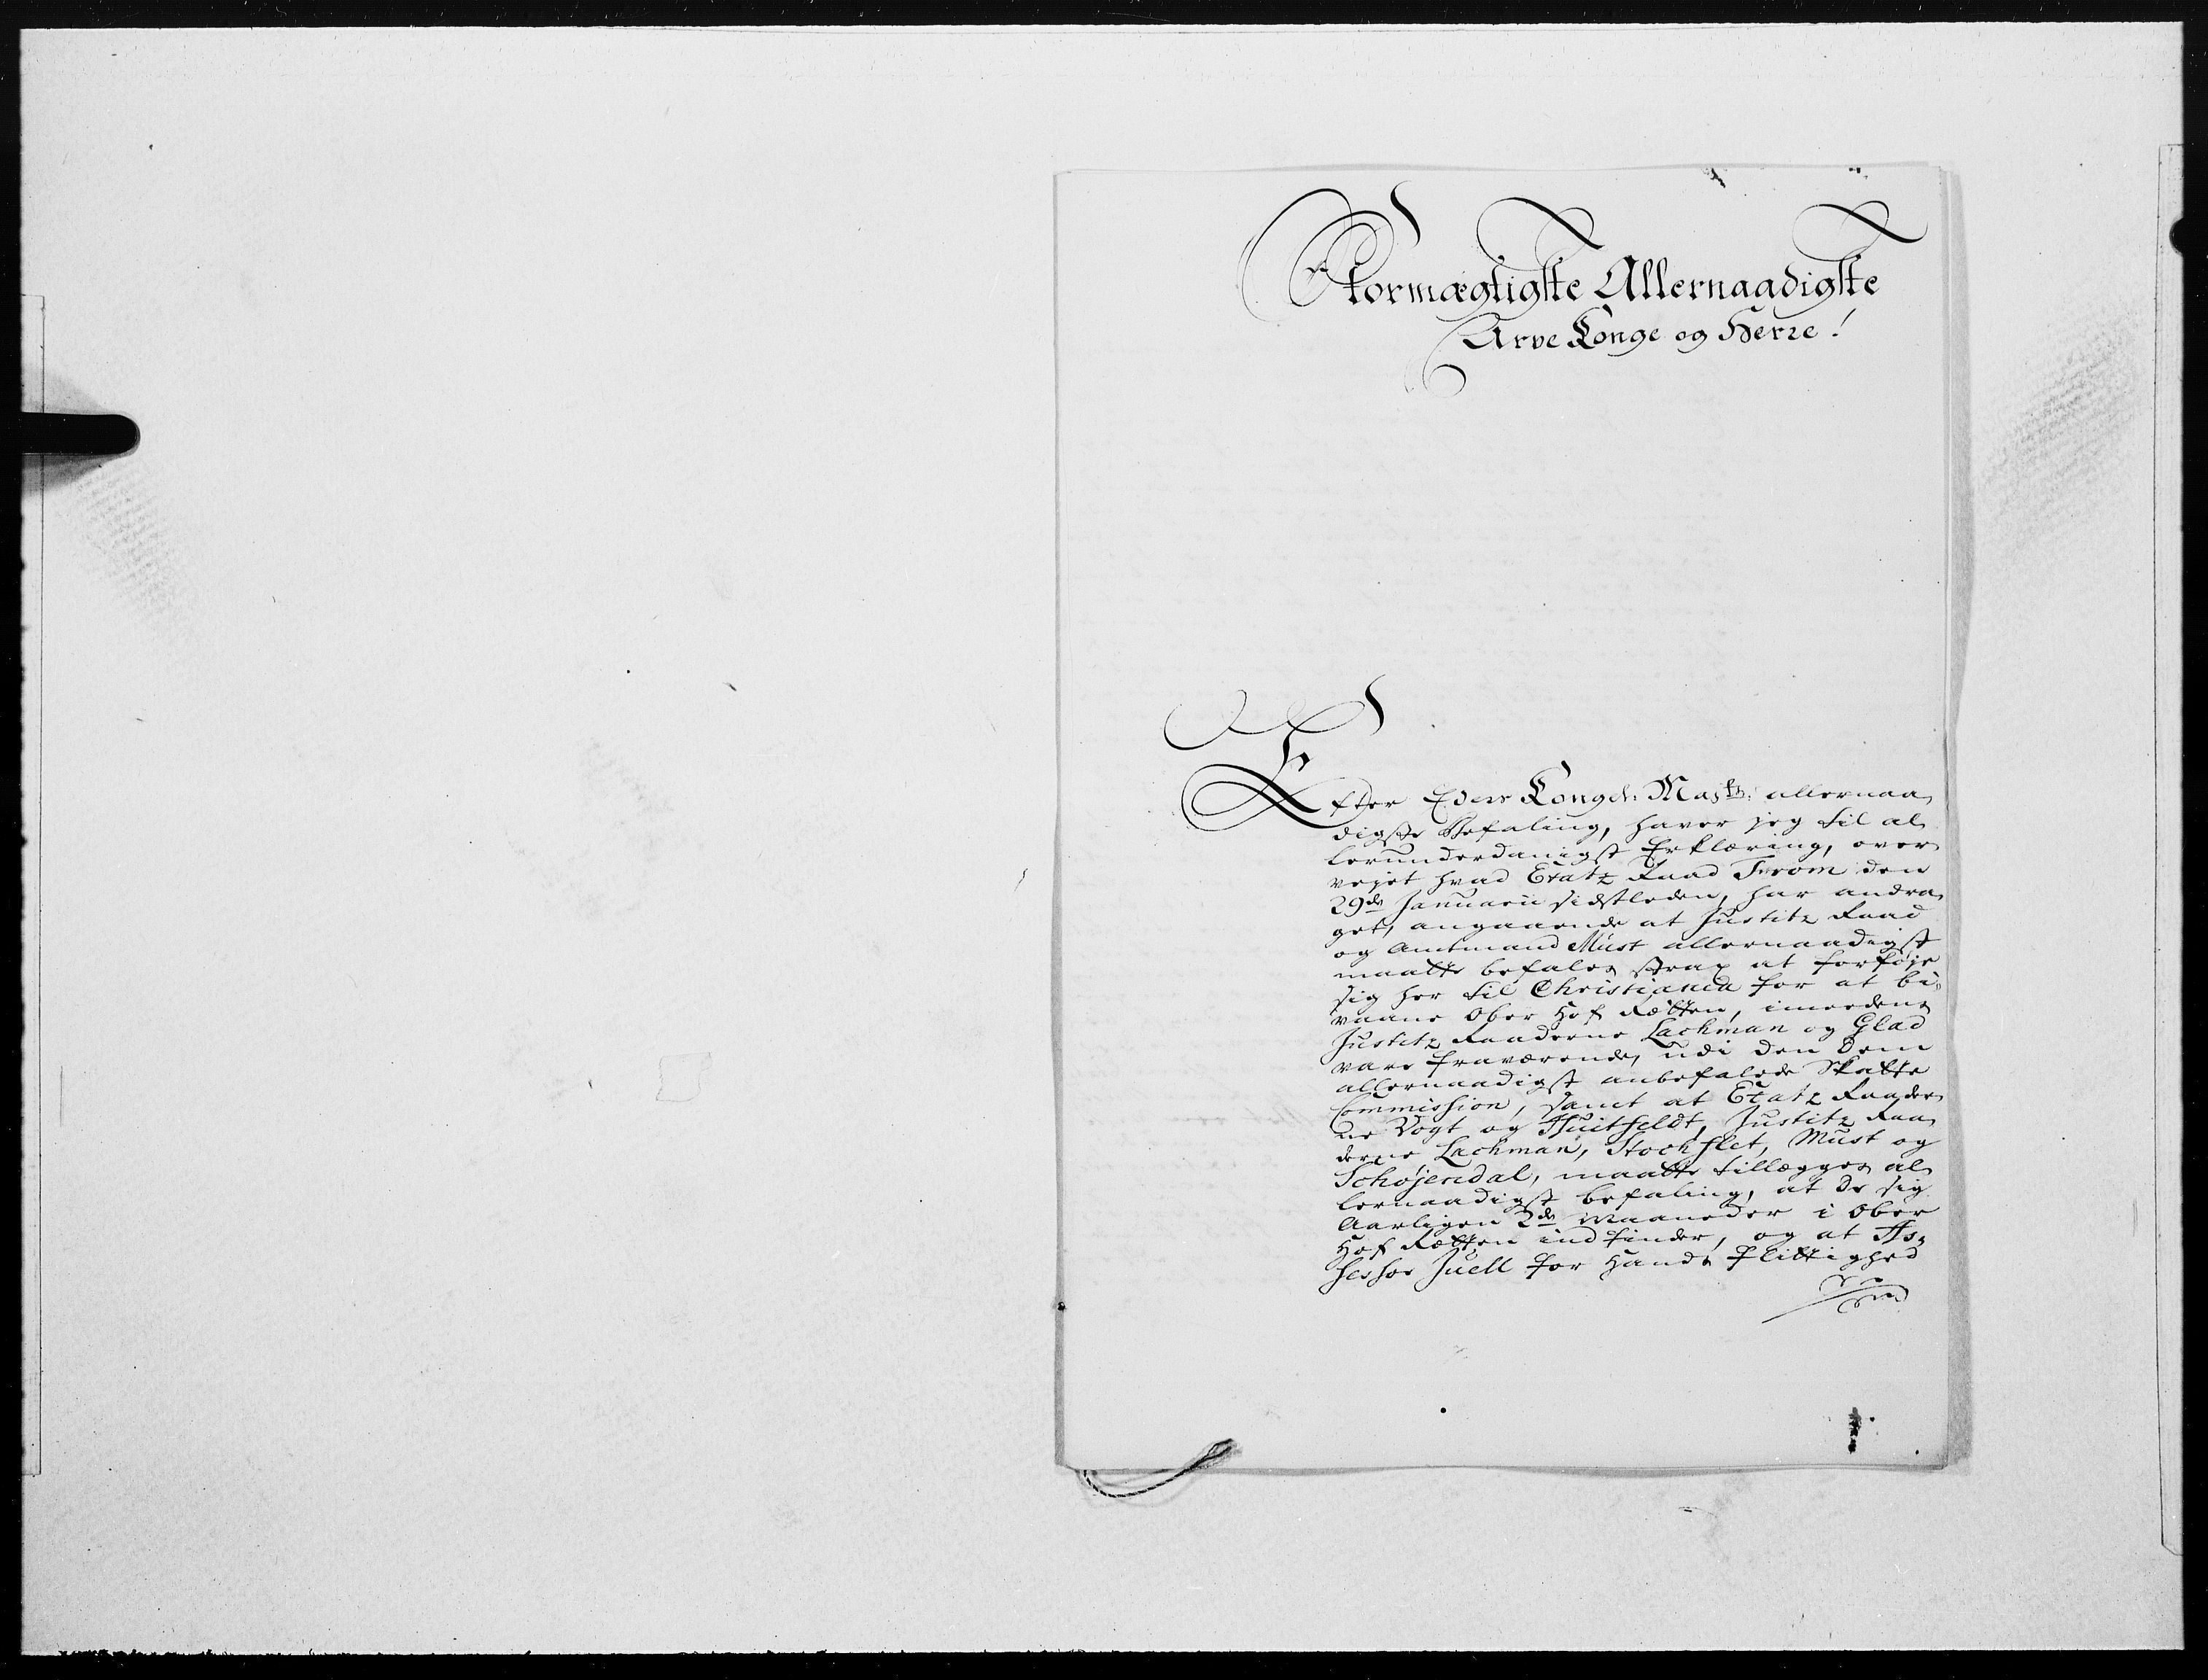 Stormægtigste Allernaadigste
Arve Konge og Herre!
Efter Eders Kongel: Maj:ts: allernaa
digste Befaling, haver jeg til al
lerunderdanigst Erklæring, over
vejet hvad Etatz Raad From den
29de Januarii sidstleden, har andra
get, angaaende at Justitz Raad
og Amtmand Must allernaadigst
maatte befales strax at forføje
sig her til Christiania for at bi-
vaane Ober Hof Rætten, imedens
Justitz Raaderne Lachman og Glad
vare fraværende, udi den Dem
allernaadigst anbefalede Skatte
Commission, samt at Etatz Raader
ne Vogt og Huitfeldt, Justitz Raa
derne Lachman, Stochflet, Must og
Schøjendal, maatte tillægges al
lernaadigst befaling, at De sig
Aarligen 2de Maaneder i Ober
Hof Rætten indfinder, og at As-
sessor Juell for Hands Flittighed